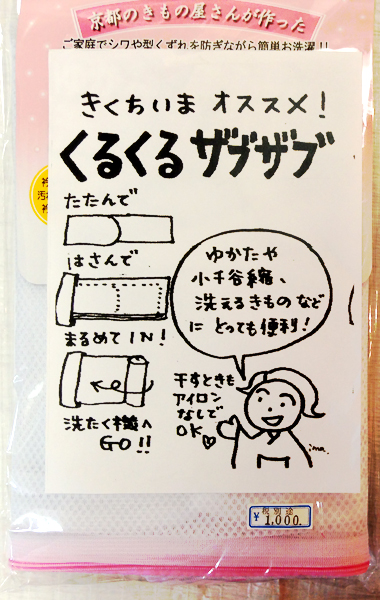 京都のきもの屋さんが作った
ご家庭でシワや型くずれを防ぎながら簡単お洗濯!!
きくちいま オススメ!
くるくる ザブザブ
たたんで
はさんで
まるめて IN!
洗たく機へ
GO!!
ゆかたや
小千谷縮、
洗えるきものなど
に とっても便利!
干すときも
アイロン
なしで
OK♡
ima.
税別途
¥1,000.